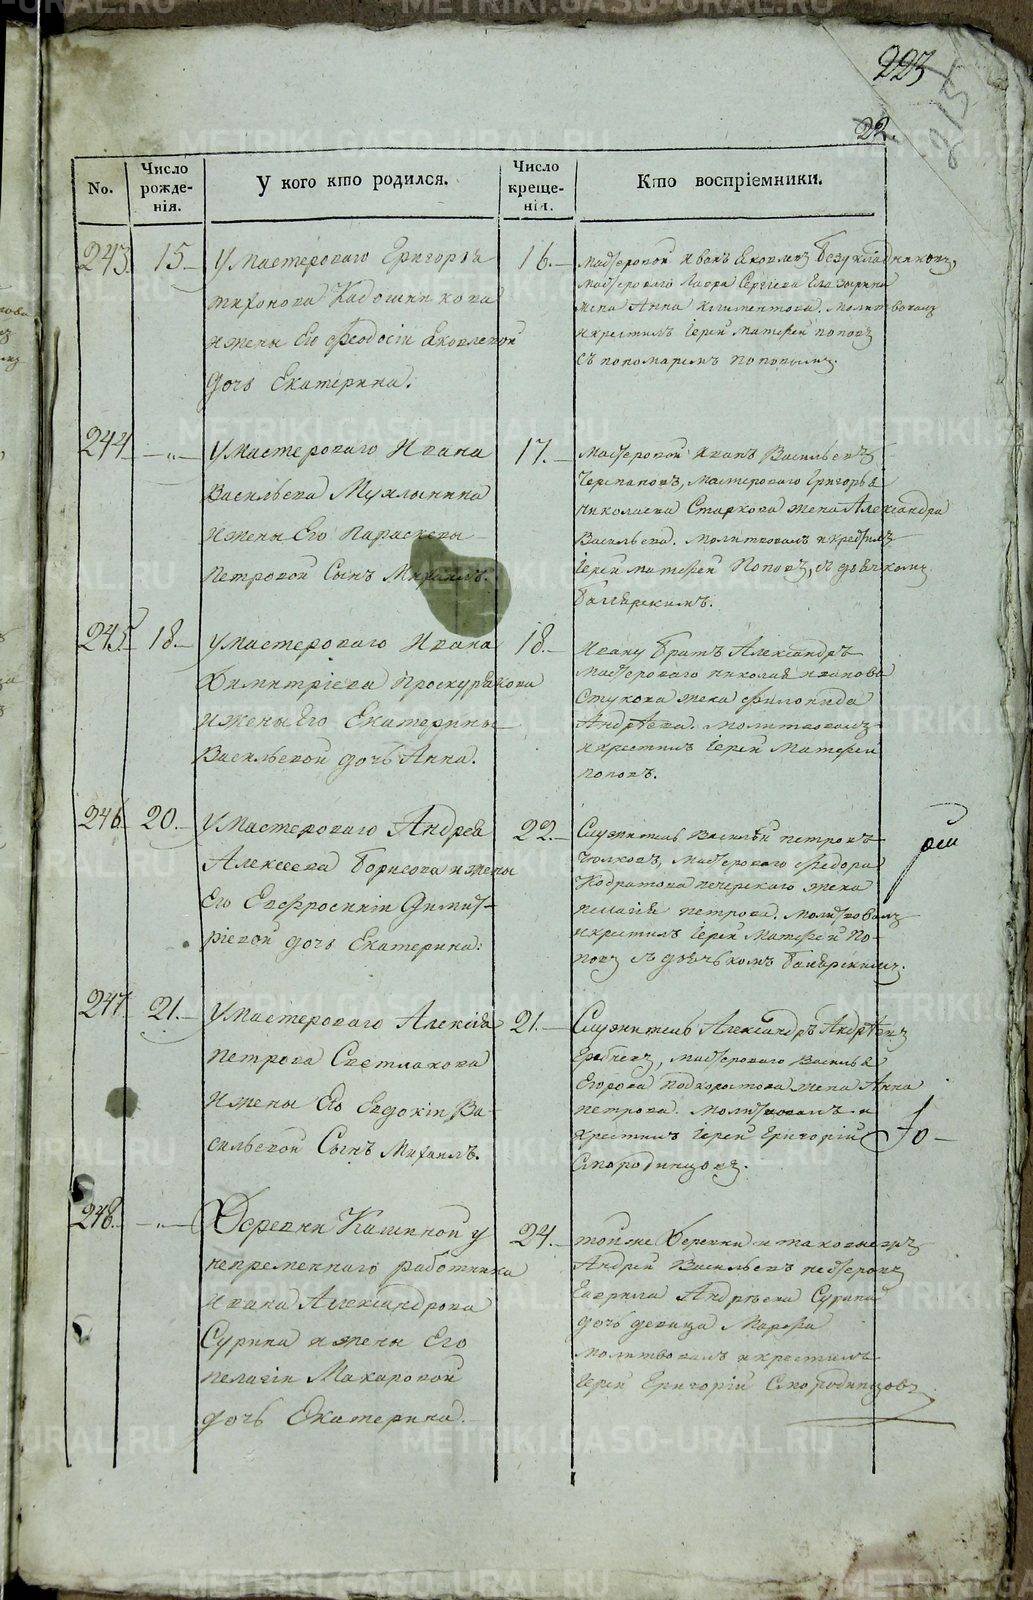 223
22.
No.
Число рожде-нія.
У кого кто родился.
Число креще-нія.
Кто воспріемники.
243. 15.
У Мастероваго Григорья
тихонова Кадошникова
и жены Его Феодосіи Яковлевой
дочь Екатерина.
16.
Мастеровой Иванъ Яковлевъ Безукладниковъ,
Мастероваго Лавра Сергѣева
жена Анна Климентова. Молитвовалъ
и крестилъ Іерей Матфей Поповъ
съ пономаремъ Поповымъ.
244. -„-
У Мастероваго Ивана
Васильева Мухлынина
и жены Его Параскевы
Петровой Сынъ Михаилъ.
17.
Мастеровой Иванъ Васильевъ
Черепановъ, Мастероваго Григорья
Николаева Старкова жена Александра
Васильева. Молитвовалъ и крестилъ
Іерей Матфей Поповъ, съ дьячкомъ
245. 18.
У Мастероваго Ивана
Димитріева Проскурякова
и жены Его Екатерины
Васильевой дочь Анна.
18.
Ивану братъ Александръ
Мастероваго Николая Иванова
Стукова жена Филонида
Андрѣева. Молитвовалъ
и крестилъ Іерей Матфей
Поповъ.
246. 20.
У Мастероваго Андрея
Алексеева Борисова и жены
Его Евфросиніи Димит-
ріевой дочь Екатерина.
22.
Служитель Василій Петровъ
Волковъ, Мастероваго Федора
Кодратова Печерскаго жена
Пелагія Петрова. Молитвовалъ
и крестилъ Іерей Матфей По-
повъ съ дьячькомъ
247. 21.
У Мастероваго Алексѣя
Петрова Светлакова
и жены Его Евдокіи Ва-
сильевой Сынъ Михаилъ.
21.
Служитель Александръ Андрѣевъ
Мастероваго Василья
Егорова Подкорытова жена Анна
Петрова. Молитвовалъ и
крестилъ Іерей Григорій
Смородинцовъ.
248. -„-
Деревни Калиной у
непременнаго работника
Ивана Александрова
Сурина и жены Его
Пелагіи Макаровой
дочь Екатерина.
24.
тойже Деревни
Андрей Васильевъ
Гаврила Андрѣева Сурина
дочь девица Марфа
Молитвовалъ и крестилъ
Іерей Григорій Смородинцовъ
METRIKI.GASO-URAL.RU